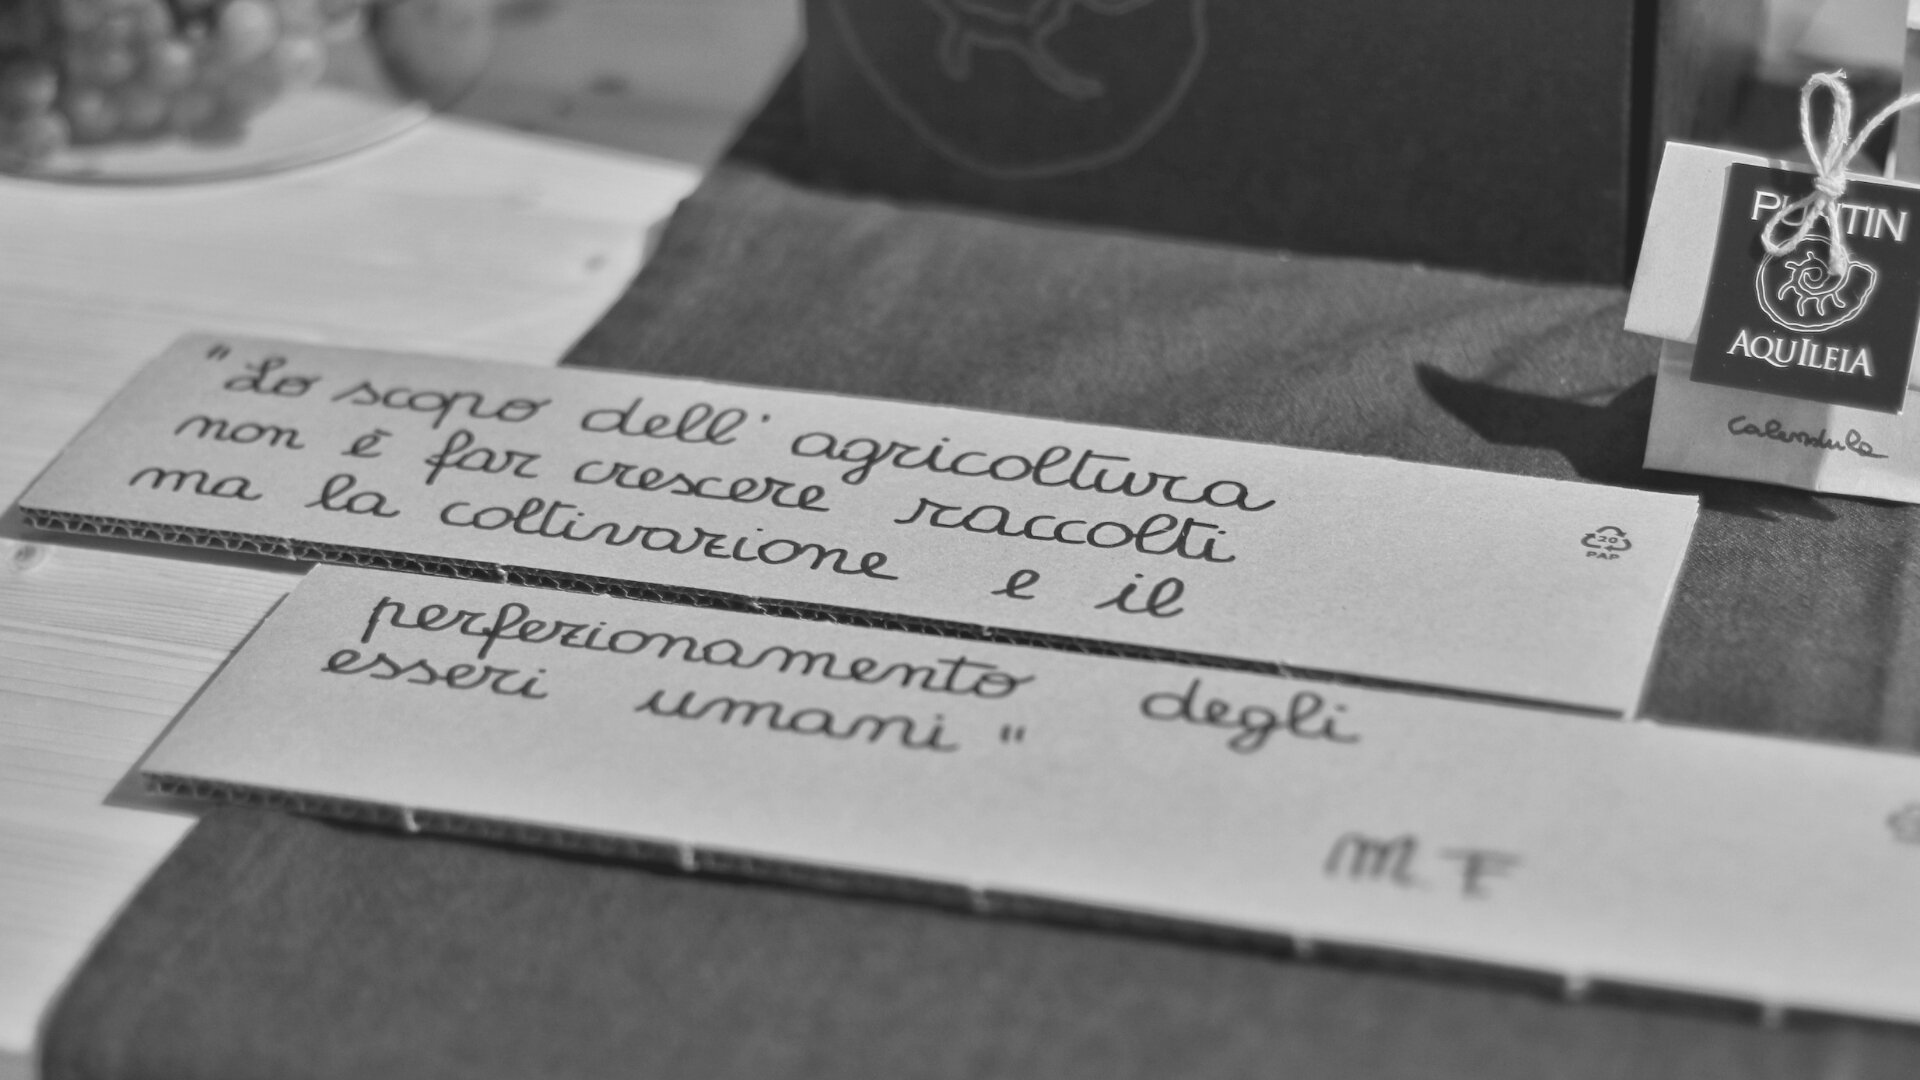 "Lo scopo dell'agricoltura
non è far crescere raccolti
ma la coltivazione e il
perfezionamento degli
esseri umani"
M F
20
PAP
PUNTIN
AQUILEIA
Calendula